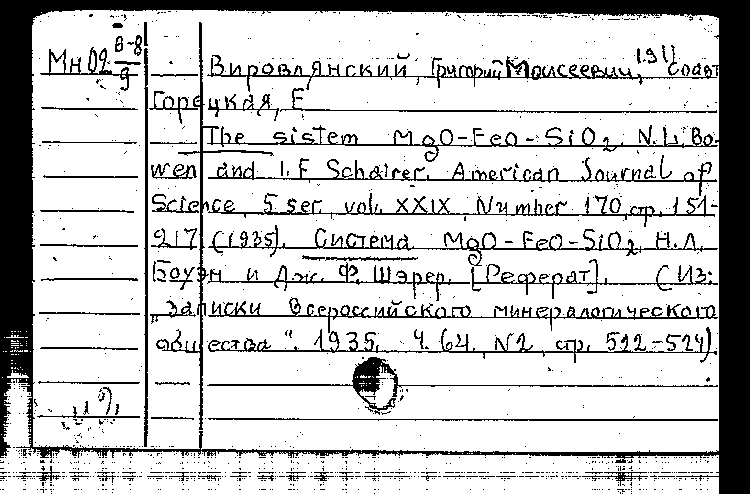 Мн02 8-8/9
Вировлянский, Григорий Моисеевич, 1911 соавт
Горецкая, Е
The sistem MgO-FeO-SiO2. N.L. Bo-
wen and I.F Schairer. American Journal of
Science, 5 ser, vol. XXIX, Number 170, стр. 151-
217 (1935). Система MgO-FeO-SiO2. Н.Л.
Боуэн и Дж. Ф. Шэрер. [Реферат]. (Из:
"Записки Всероссийского минералогического
общества". 1935, ч. 64, N2, стр. 522-524).